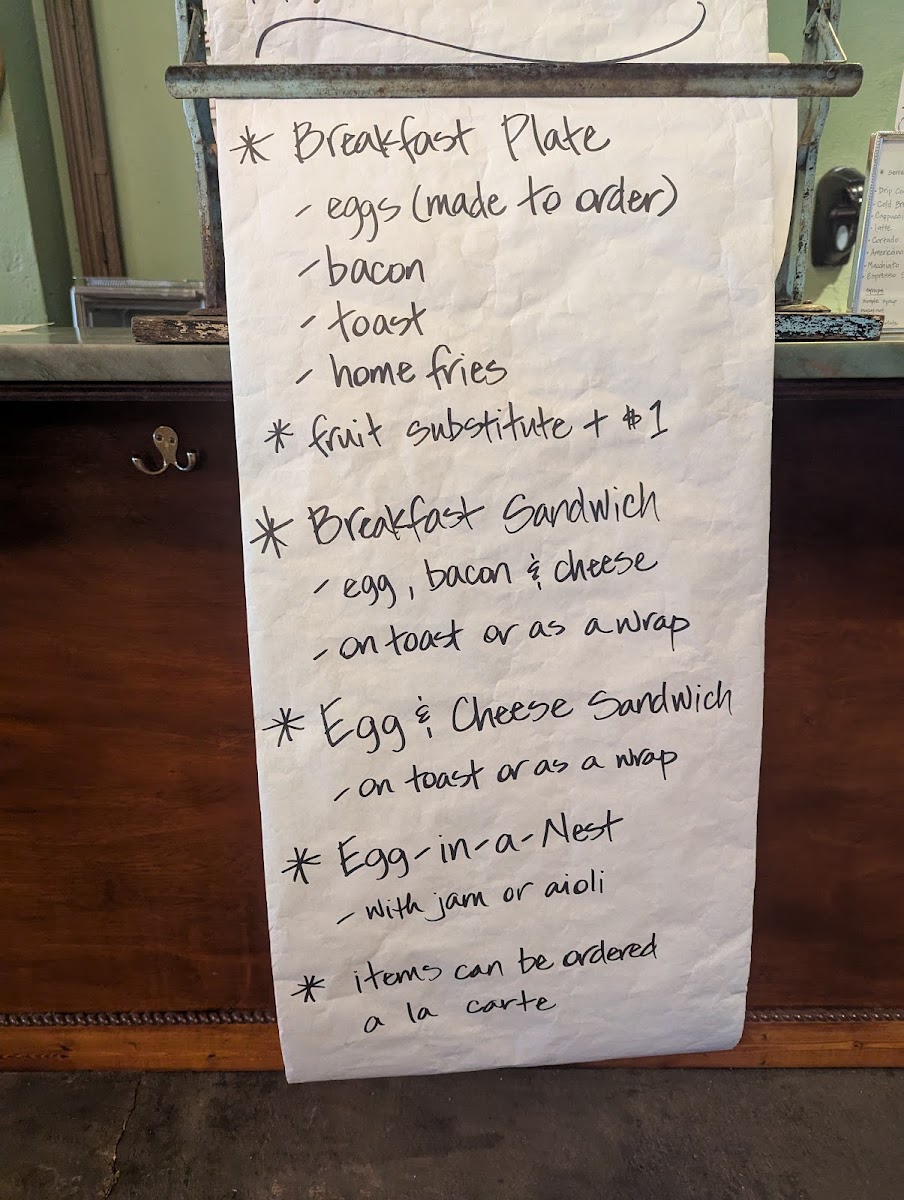 * Breakfast Plate
- eggs (made to order)
- bacon
- toast
- home fries
* fruit substitute + $1
* Breakfast Sandwich
- egg, bacon & cheese
- on toast or as a wrap
* Egg & Cheese Sandwich
- on toast or as a wrap
* Egg-in-a-Nest
- with jam or aioli
* items can be ordered
a la carte
- Drip
- Cold
- Latte
- Cortado
- Americano
- Macchiato
- Espresso